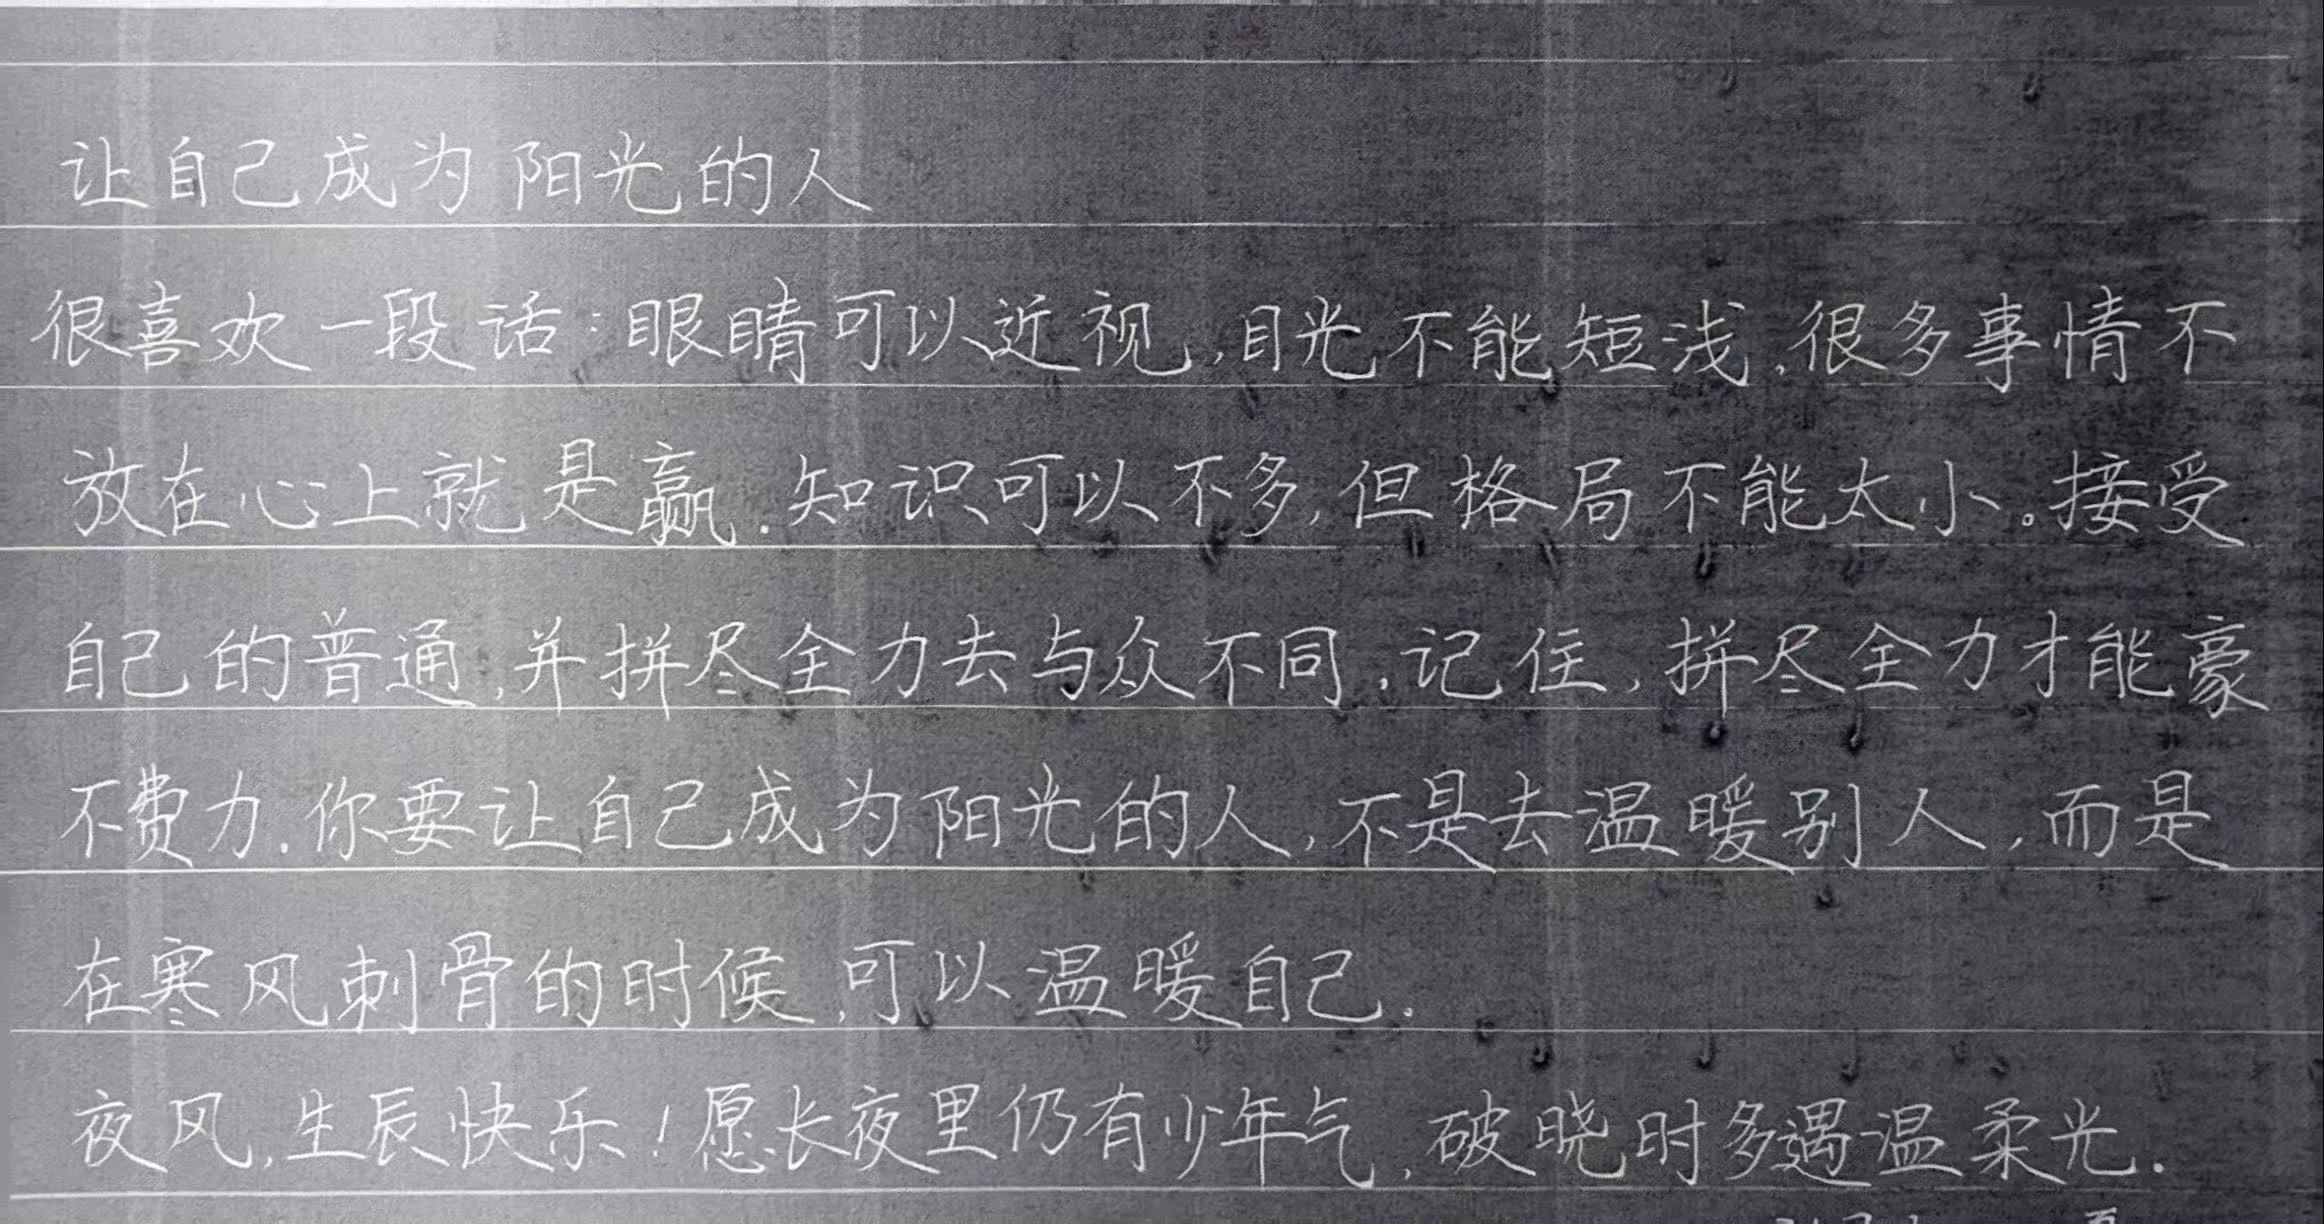 让自己成为阳光的人
很喜欢一段话:眼睛可以近视,目光不能短浅.很多事情不
放在心上就是赢.知识可以不多,但格局不能太小。接受
自己的普通,并拼尽全力去与众不同.记住,拼尽全力才能豪
不费力.你要让自己成为阳光的人,不是去温暖别人,而是
在寒风刺骨的时候,可以温暖自己.
夜风,生辰快乐!愿长夜里仍有少年气,破晓时多遇温柔光.